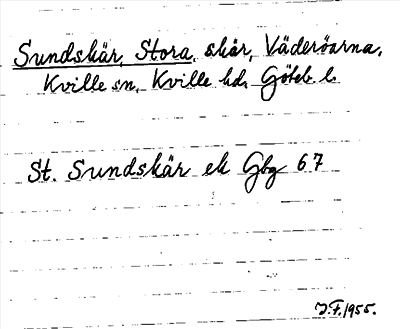 Sundskär, Stora, skär, Väderöarna,
Kville sn, Kville hd, Göteb. l.
St. Sundskär ek Gbg 67
J.F. 1955.